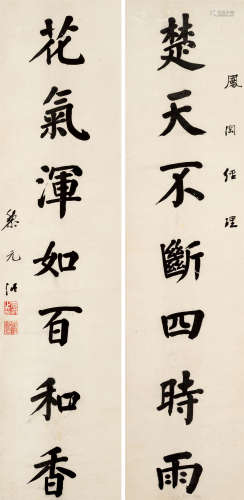 鳳閣經理
楚天不斷四時雨
花氣渾如百和香
黎元洪